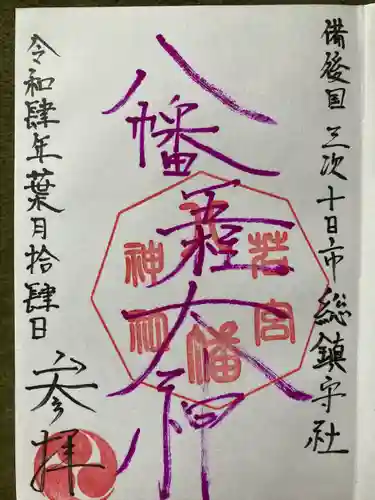 備後国 三次十日市総鎮守社
八幡
大神
令和肆年葉月拾肆日
参拝
若宮
八幡
神社